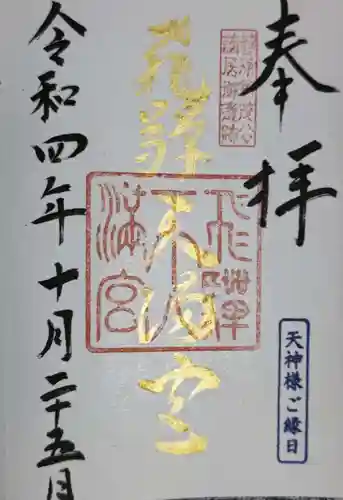 奉拝
飛騨天満宮
飛騨天満宮
天神様ご縁日
令和四年十月二十五日